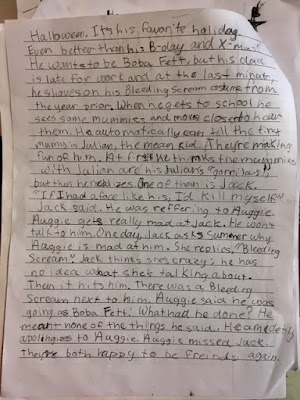 Halloween. It's his favorite holiday.
Even better than his B-day and X-mas!
He wants to be Boba Fett, but his dad
is late for work and at the last minute,
he shoves on his Bleeding Scream costume from
the year prior. When he gets to school he
sees some mummies and moves closer to hear
them. He automatically can tell the first
mummy is Julian, the mean kid. They're making
fun of him. At first he thinks the mummies
with Julian are his Julian's
but then he realizes one of them is Jack.
"If I had a face like his, I'd kill myself"
Jack said. He was reffering to Auggie.
Auggie gets really mad at Jack. He wont
talk to him. One day, Jack asks Summer why
Auggie is mad at him. She replies, "Bleeding
Scream". Jack thinks she's crazy, he has
no idea what she's talking about.
Then it hits him. There was a Bleeding
Scream next to him. Auggie said he was
going as Boba Fett! What had he done? He
meant none of the things he said. He
apologizes to Auggie. Auggie missed Jack.
They're both happy to be freinds again.